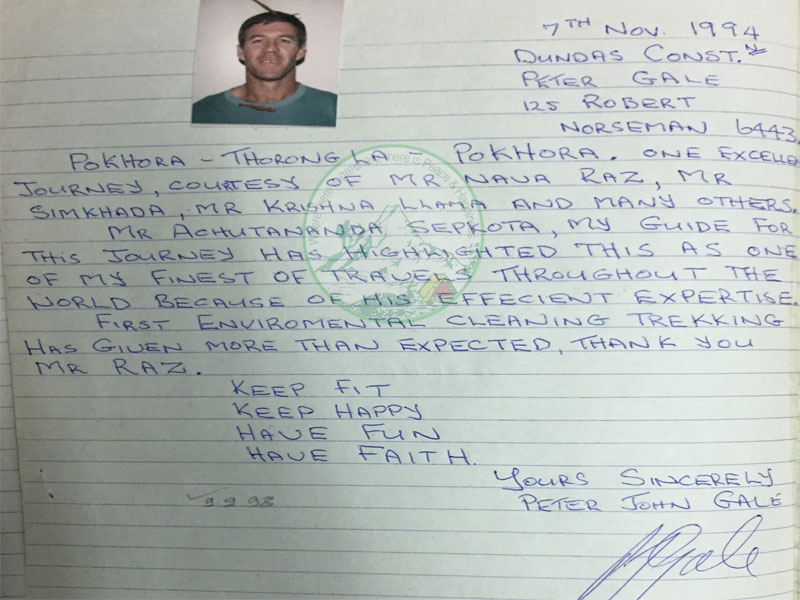 7TH NOV. 1994
DUNDAS CONST.
PETER GALE
125 ROBERT
NORSEMAN 6443.
POKHORA - THORONG LA - POKHORA. ONE EXCELLE
JOURNEY, COURTESY OF MR NAVA RAZ, MR
SIMKHADA, MR KRISHNA LLAMA AND MANY OTHERS.
MR ACHUTANANDA SEPKOTA, MY GUIDE FOR
THIS JOURNEY HAS HIGHLIGHTED THIS AS ONE
OF MY FINEST OF TRAVELS THROUGHOUT THE
WORLD BECAUSE OF HIS EFFECIENT EXPERTISE.
FIRST ENVIROMENTAL CLEANING TREKKING
HAS GIVEN MORE THAN EXPECTED, THANK YOU
MR RAZ.
KEEP FIT
KEEP HAPPY
HAVE FUN
HAVE FAITH.
YOURS SINCERELY
PETER JOHN GALE
JGale